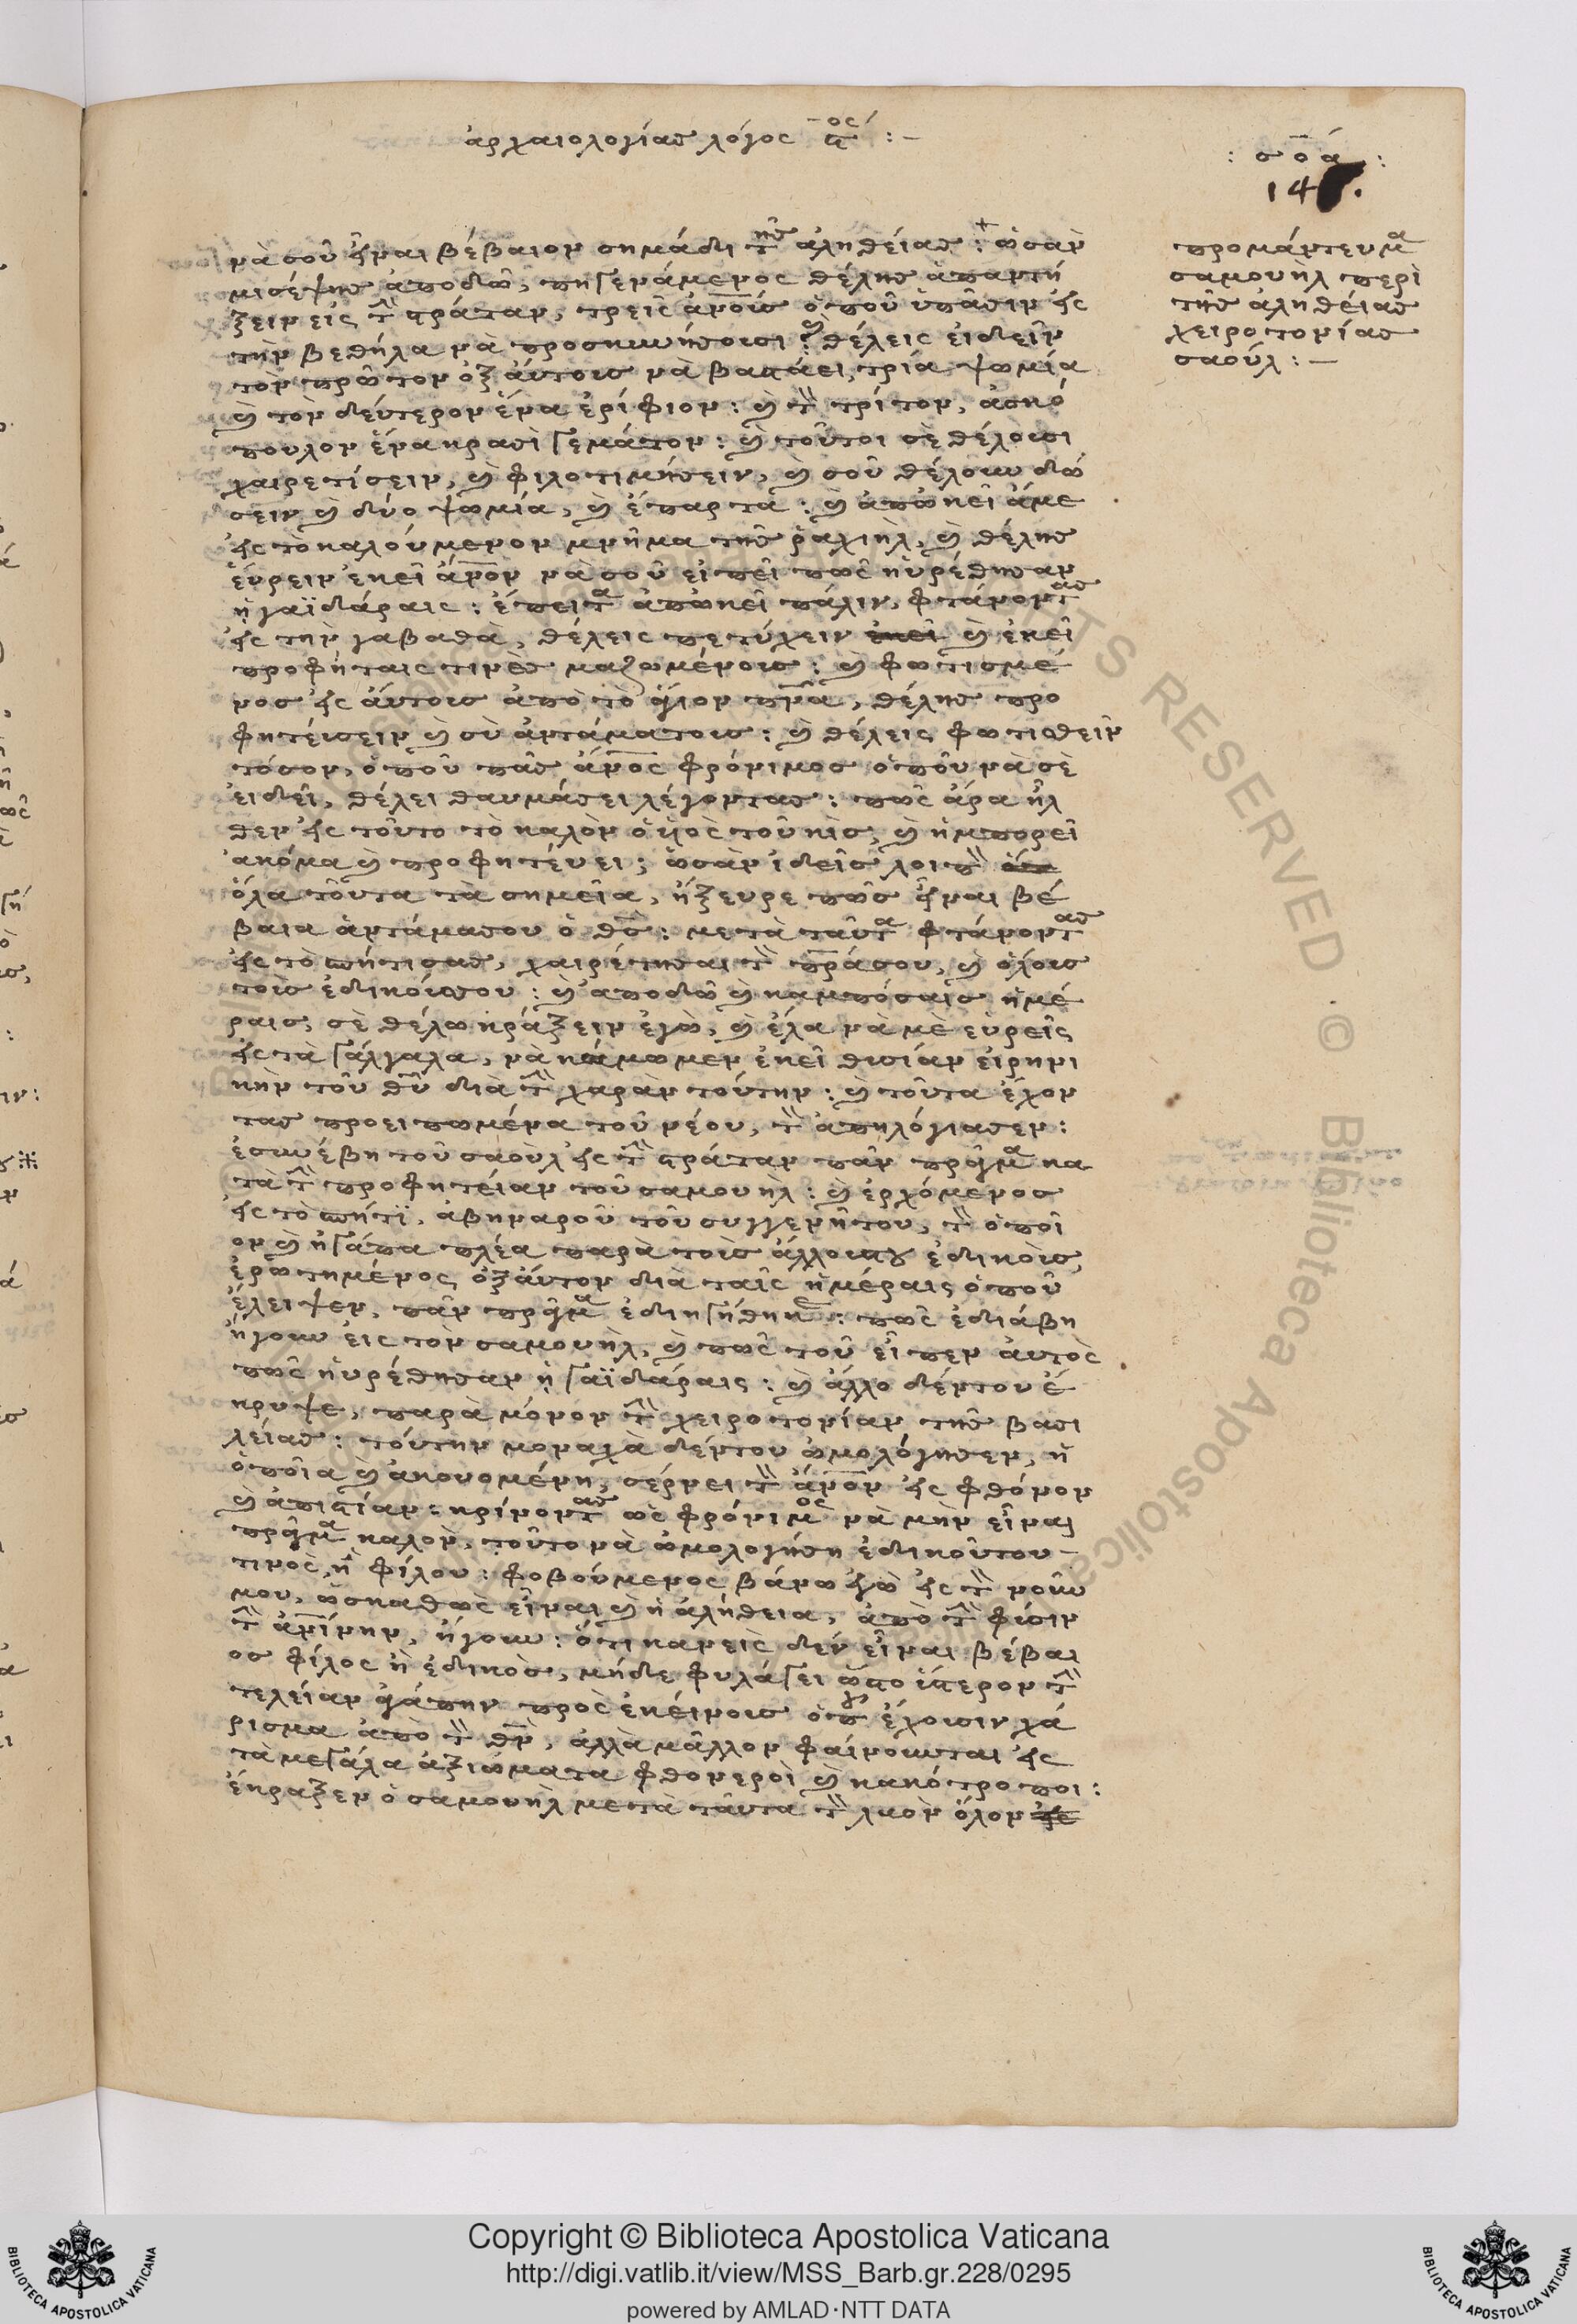 ἀρχαιολογίας λόγος ϛος :–
: σοά :
14 .
νὰ σοῦ εἶναι βέβαιον σημάδι τῆς ἀληθείας : ὡσὰν
μισέψης ἀποδῶ, πηγενάμενος θέλης ἀπαντή
ξειν εἰς τὴ στράταν, τρεῖς ἀνους ὁποῦ ὑπᾶσιν εἰς
τὴν βεθήλα νὰ προσκυνήσουσι : θέλεις εἰδεῖν
τὸν πρῶτον ὀξ αὐτους νὰ βαστάει, τρία ψωμία
καὶ τὸν δεύτερον ἕνα ἐρίφιον : καὶ τὸν τρίτον, ἀσκό
πουλον ἕνα κρασὶ γεμάτον : καὶ τοῦτοι σὲ θέλουσι
χαιρετίσειν, καὶ φιλοτιμήσειν, καὶ σοῦ θέλουν δώ
σειν καὶ δύο ψωμία, καὶ ἔπαρτα : καὶ ἀπῶκεῖ ἄμε
εἰς τὸ καλούμενον μνῆμα τῆς ῥαχιὴλ, καὶ θέλης
εὕρειν ἐκεῖ ἄνον νὰ σοῦ εἰπεῖ πῶς ηὑρέθησαν
ἡ γαϊδάραις : ἔπειτα ἀπῶκεῖ πάλιν, φτάνοντας
εἰς τὴν γαβαθὰ, θέλεις πετύχειν ἐκεῖ καὶ ἐκεῖ
προφήταις τινὲς μαζωμένους : καὶ φωτισμέ
νος εἰς αὐτους ἀπὸ τὸ ἅγιον πνα, θέλης προ
φητεύσειν καὶ σὺ ἀντάματους : καὶ θέλεις φωτισθεῖν
τόσον, ὁποῦ πᾶς ἄνος φρόνιμος ὁποῦ νὰ σὲ
εἰδεῖ, θέλει θαυμάσει λέγοντας : πῶς ἆρα ἦλ
θεν εἰς τοῦτο τὸ καλὸν ὁ ὑιὸς τοῦ κὶς, καὶ ἡμπορεῖ
ἀκόμα καὶ προφητεύει ; ὡσὰν ἰδεῖς λοιπὸν
ὅλα τοῦτα τὰ σημεῖα, ἤξευρε πῶς εἶναι βέ
βαια ἀντάμασου ὁ θς : μετὰ ταῦτα φτάνοντας
εἰς τὸ σπήτισας, χαιρέτησαι τὸν πρασου, καὶ ὁλους
τοὺς ἐδικούσσου : καὶ ἀποδῶ καὶ καμπόσαις ἡμέ
ραις, σὲ θέλω κράξειν ἐγὼ, καὶ ἔλα νὰ μὲ εὑρεῖς
εἰς τὰ γάλγαλα, νὰ κάμωμεν ἐκεῖ θυσίαν εἰρηνι
κὴν τοῦ θυ διὰ τὴ χαρὰν τούτην : καὶ τοῦτα ἔχον
τας προειπωμένα τοῦ νέου, τὸν ἀπηλόγιασεν :
ἐσυνέβη τοῦ σαοὺλ εἰς τὴ στράταν πᾶν πρᾶγμα κα
τὰ τὴ προφητείαν τοῦ σαμουὴλ : καὶ ἐρχόμενος
εἰς τὸ σπήτϊ, ἀβηναροῦ τοῦ συγγενῆτου, τὸν ὁποῖ
ον καὶ ἠγάπα πλέα παρὰ τοὺς ἄλλουςτου ἐδικοὺς,
ἐρωτημένος ὀξ αὐτον διὰ ταῖς ἡμέραις ὁποῦ
ἔλειψεν, πᾶν πρᾶγμα ἐδιηγήθηκε : πῶς ἐδιάβη
ἤγουν εἰς τὸν σαμουὴλ, καὶ πῶς τοῦ εἶπεν αὐτὸς
πῶς ηὑρέθησαν ἡ γαϊδάραις : καὶ ἄλλο δέντου ἔ
κρυψε, παρὰ μόνον τὴ χειροτονίαν τῆς βασι
λείας : τούτην μοναχὰ δέντου ὡμολόγησεν, ἡ
ὁποῖα καὶ ἀκουομένη, σέρνει τὸν ἄνον εἰς φθόνον
καὶ ἀπιστίαν : κρίνοντας ὡς φρόνιμος νὰ μὴν εἶναι
πρᾶγμα καλὸν, τοῦτο νὰ ὡμολογήση ἐδικοῦτου –
τινὸς, ἢ φίλου : φοβούμενος βάνω ἐγὼ εἰς τὸν νοῦν
μου, ὡσκαθὼς εἶναι καὶ ἡ ἀλήθεια, ἀπὸ τὴ φύσιν
τὴ ἀνίνην, ἤγουν : ὅτι κανεὶς δὲν εἶναι βέβαι
ος φίλος ἢ ἐδικὸς, μήδε φυλάγει ὕστερον τὴ
τελείαν ἀγάπην πρὸς ἐκείνους ὁποῦ ἔχουσιν χά
ρισμα ἀπὸ τὸν θν, ἀλλὰ μᾶλλον φαίνουνται εἰς
τὰ μεγάλα ἀξιώματα φθονεροὶ καὶ κακότροποι :
ἔκραξεν ὁ σαμουὴλ μετὰ ταῦτα τὸν λαὸν ὅλον εἰς
προμάντευμα
σαμουὴλ περὶ
τῆς ἀληθείας
χειροτονίας
σαούλ : –
Copyright © Biblioteca Apostolica Vaticana
http://digi.vatlib.it/view/MSS_Barb.gr.228/0295
powered by AMLAD·NTT DATA
BIBLIOTECA APOSTOLICA VATICANA
BIBLIOTECA APOSTOLICA VATICANA